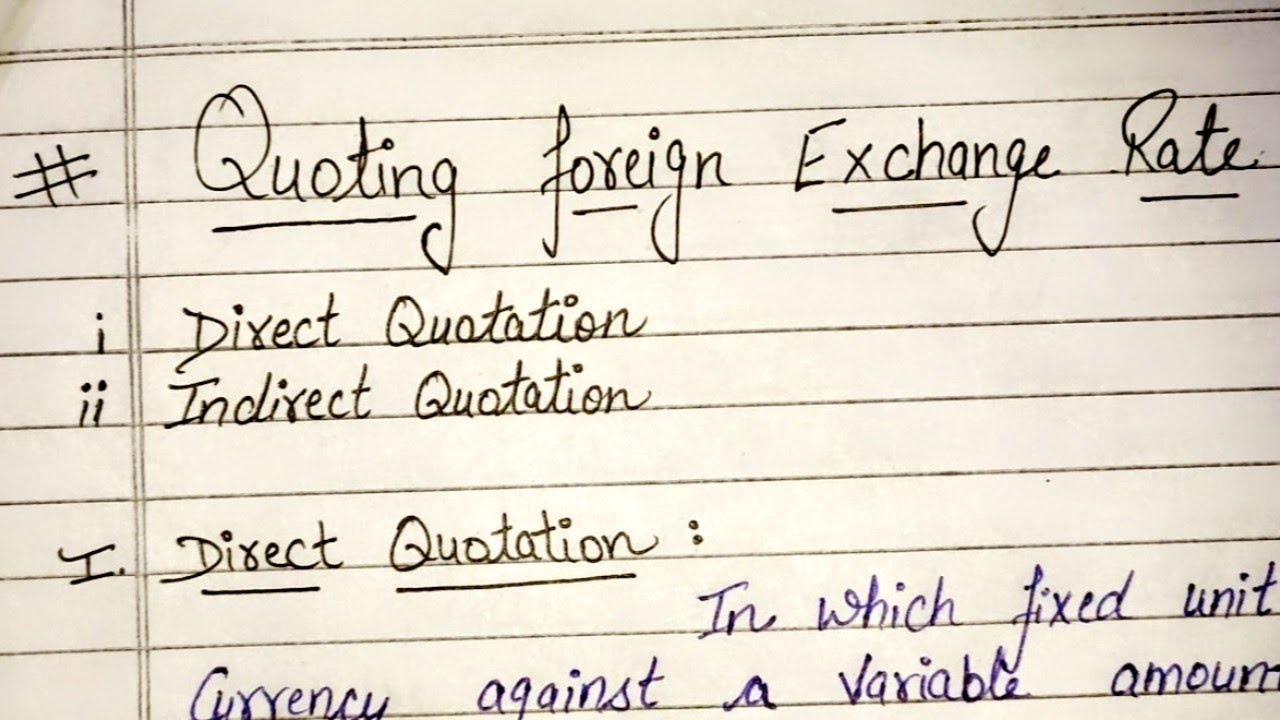 # Quoting foreign Exchange Rate
i Direct Quotation
ii Indirect Quotation
I. Direct Quotation :
In which fixed unit
Currency against a variable amoun